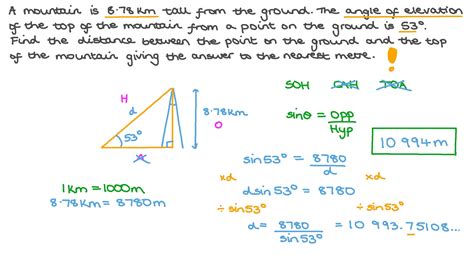 A mountain is 8.78 km tall from the ground. The angle of elevation
of the top of the mountain from a point on the ground is 53°.
Find the distance between the point on the ground and the top
of the mountain giving the answer to the nearest metre.
!
SOH CAH TOA
H
d
8.78km
O
53°
A
sinθ = Opp
Hyp
10 994m
sin53° = 8780
d
×d ×d
1km = 1000m
dsin53° = 8780
8.78km = 8780m
÷ sin53° ÷ sin53°
d = 8780 = 10 993.75108...
sin53°